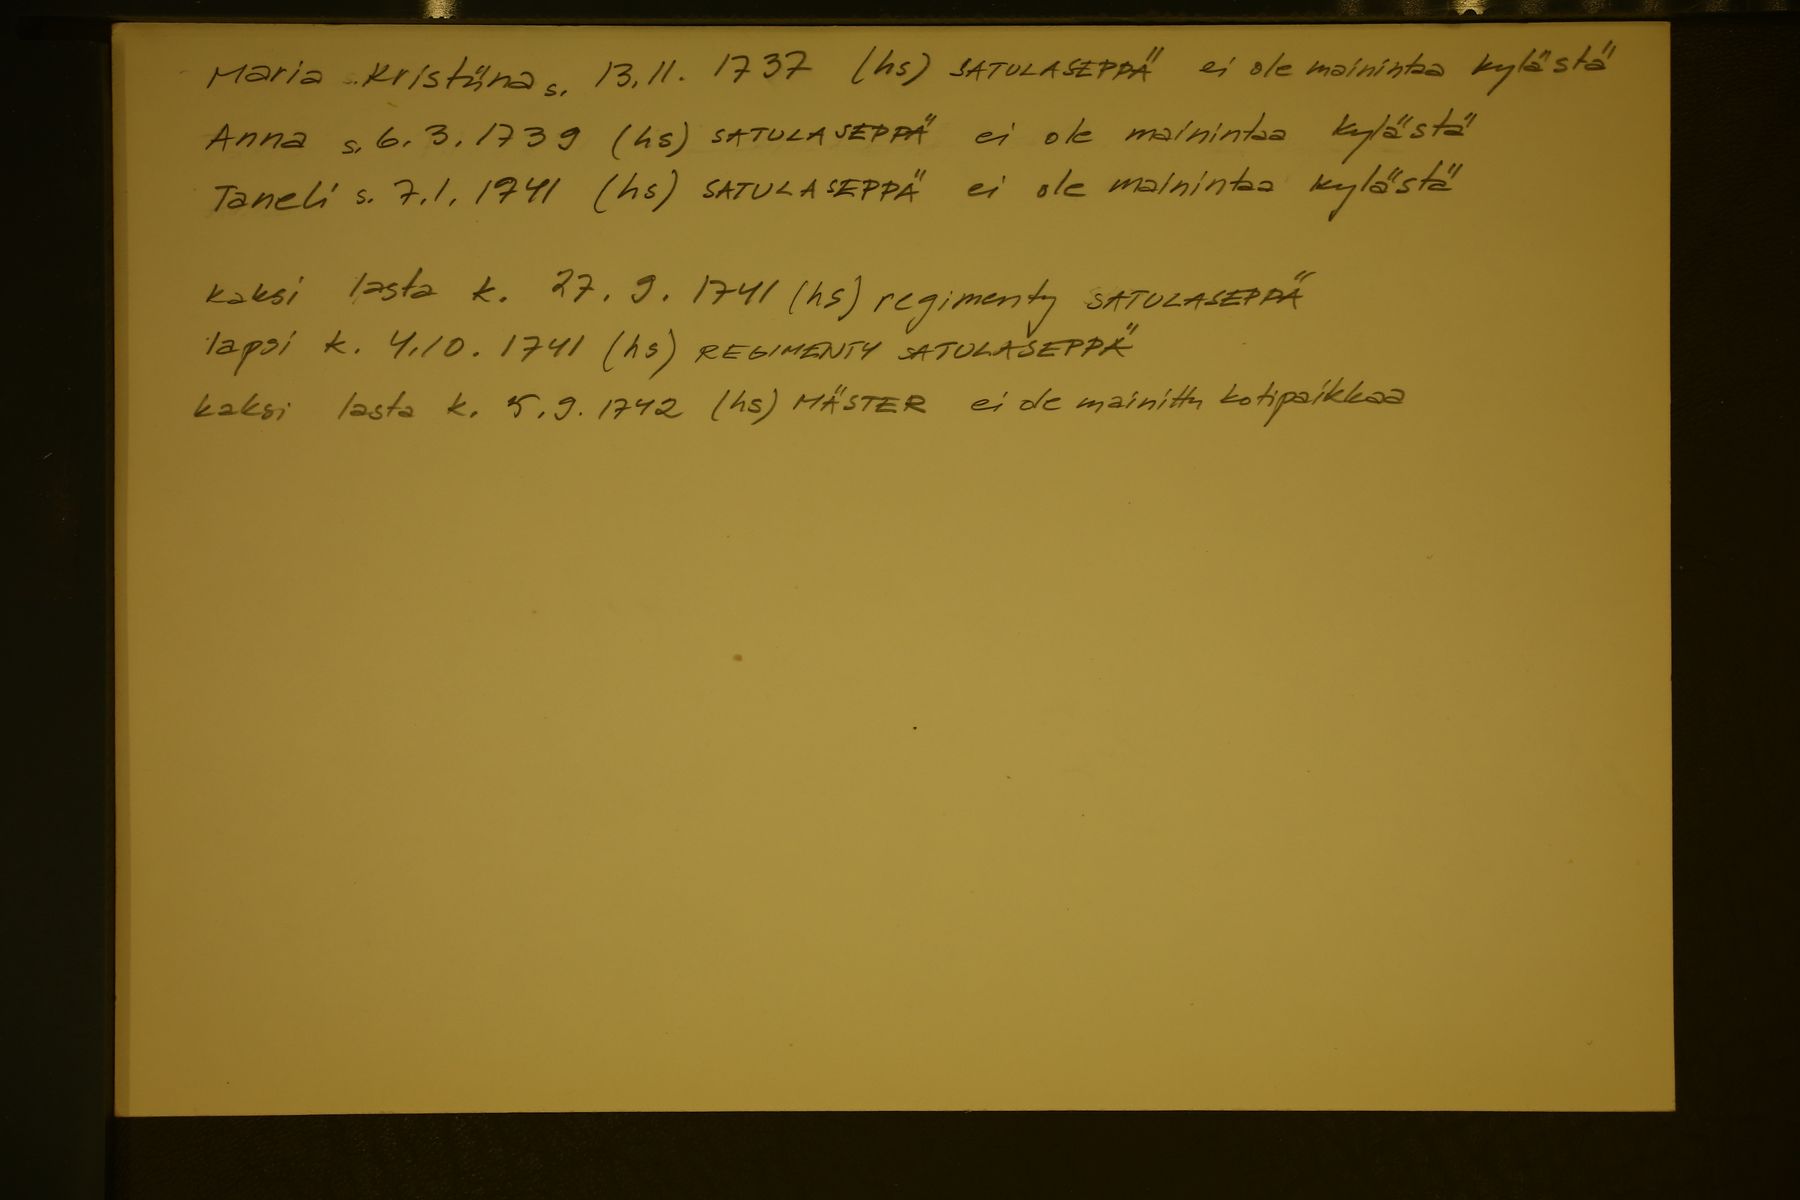 Maria Kristiina s. 13.11. 1737 (hs) SATULASEPPÄ ei ole mainintaa kylästä
Anna s. 6.3.1739 (hs) SATULASEPPÄ ei ole mainintaa kylästä
Taneli s. 7.1.1741 (hs) SATULASEPPÄ ei ole mainintaa kylästä
kaksi lasta k. 27.9.1741 (hs) regimenty SATULASEPPÄ
lapsi k. 4.10.1741 (hs) REGIMENTY SATULASEPPÄ
kaksi lasta k. 5.9.1742 (hs) MÄSTER ei ole mainittu kotipaikkaa